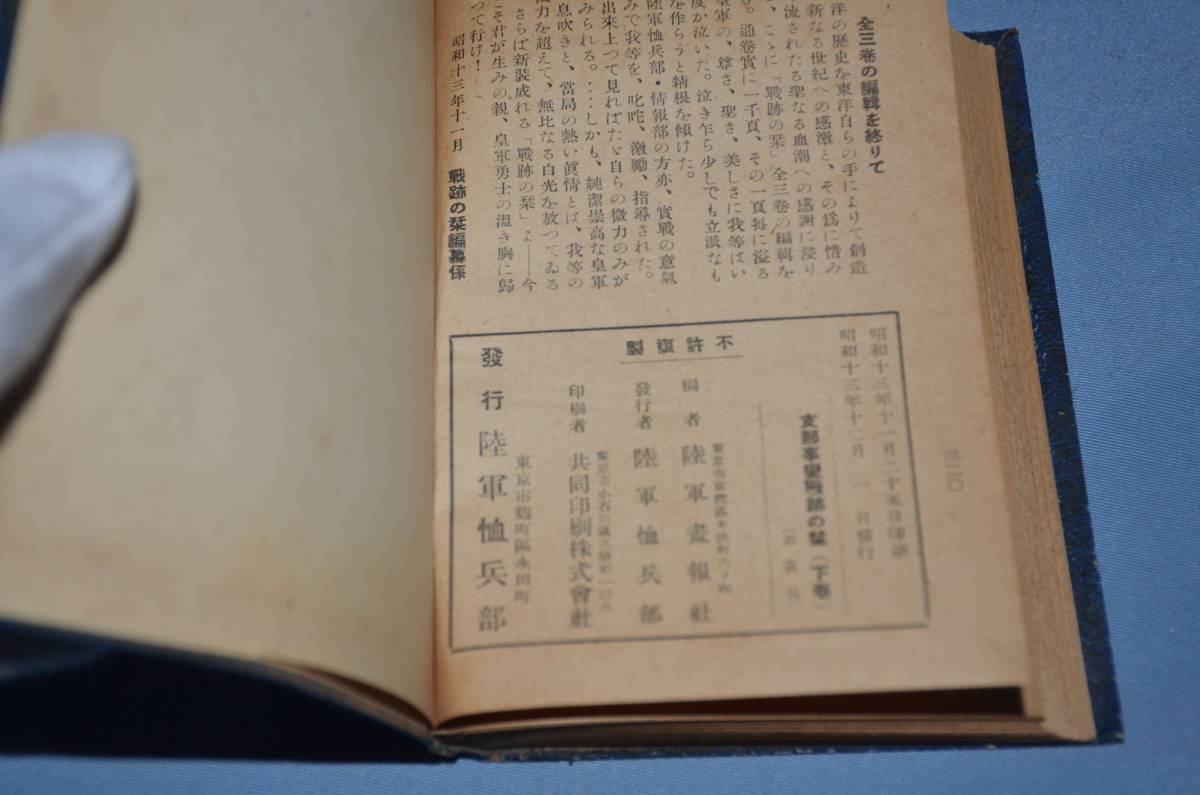 全三卷の編輯を終りて
洋の歷史を東洋自らの手によりて創造
新なる世紀への感激と、その爲に惜み
流されたる聖なる血潮への感謝に浸り
、こゝに「戰跡の栞」全三卷の編輯を
。通卷實に一千頁、その一頁每に溢る
皇軍の、尊さ、聖さ、美しさに我等はい
度か泣いた。泣き乍ら少しでも立派なも
を作らうと精根を傾けた。
陸軍恤兵部・情報部の方亦、實戰の意氣
みで我等を、叱咤、激勵、指導された。
出來上つて見ればたゞ自らの微力のみが
みられる。‥‥しかも、純潔崇高な皇軍
息吹きと、當局の熱い眞情とは、我等の
力を超えて、無比なる白光を放つてゐる
さらば新裝成れる「戰跡の栞」よ――今
こそ君が生みの親、皇軍勇士の溫き胸に歸
つて行け！
昭和十三年十一月 戰跡の栞編纂係
三二〇
昭和十三年十一月二十五日印刷
昭和十三年十二月一日發行
支那事變戰跡の栞（下卷）
不許復製
編者 陸軍畫報社
發行者 陸軍恤兵部
印刷者 共同印刷株式會社
東京市麴町區永田町
發行 陸軍恤兵部